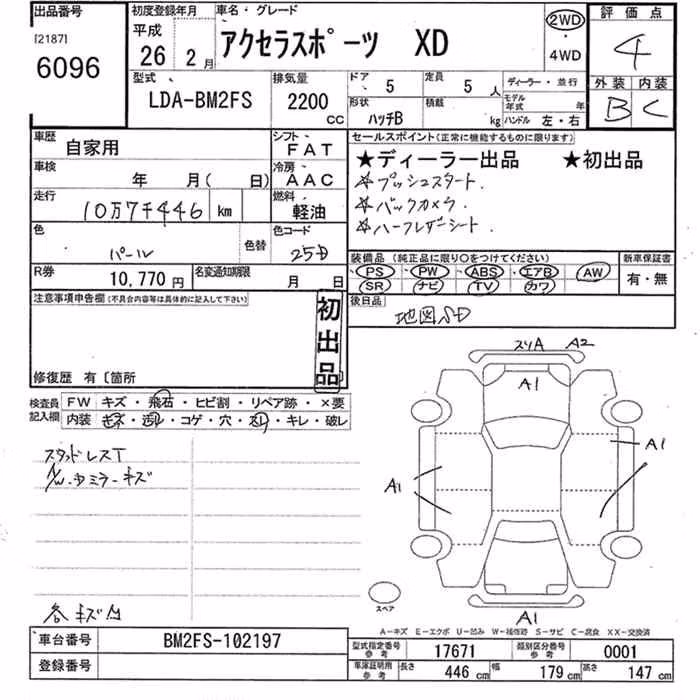 出品番号
[2187]
6096
初度登録年月
平成
26 2月
車名・グレード
アクセラスポーツ XD
2WD
・
4WD
評価点
4
外装 内装
B C
型式
LDA-BM2FS
排気量
2200
cc
ドア 5
定員 5人
形状 ハッチB
積載 kg
ディーラー・並行
モデル年式 年
ハンドル 左・右
車歴 自家用
車検 年 月( 日)
走行 10万7千446 km
色 パール
色替
シフト FAT
冷房 AAC
燃料 軽油
色コード 25D
R券 10,770円
名変通知期限 月 日
セールスポイント(正常に機能するものに限ります)
★ディーラー出品 ★初出品
☆プッシュスタート.
☆バックカメラ.
☆ハーフレザーシート.
装備品(純正品に限り○をつけてください)
新車保証書
PS PW ABS エアB AW
SR ナビ TV カワ
有・無
後日品
地図SD
注意事項申告欄(不具合内容等は具体的に記入して下さい)
初出品
修復歴 有〔箇所
検査員記入欄
FW キズ・飛石・ヒビ割・リペア跡・×要
内装 キズ・汚レ・コゲ・穴・スレ・キレ・破レ
スタッドレスT
キズ
各キズ
スリA A2
A1
A1
A1
A1
スペア
A－キズ E－エクボ U－凹み W－補修跡 S－サビ C－腐食 XX－交換済
車台番号 BM2FS-102197
登録番号
型式指定番号 参考 17671
類別区分番号 参考 0001
車庫証明用 参考
長さ 446cm
幅 179cm
高さ 147cm